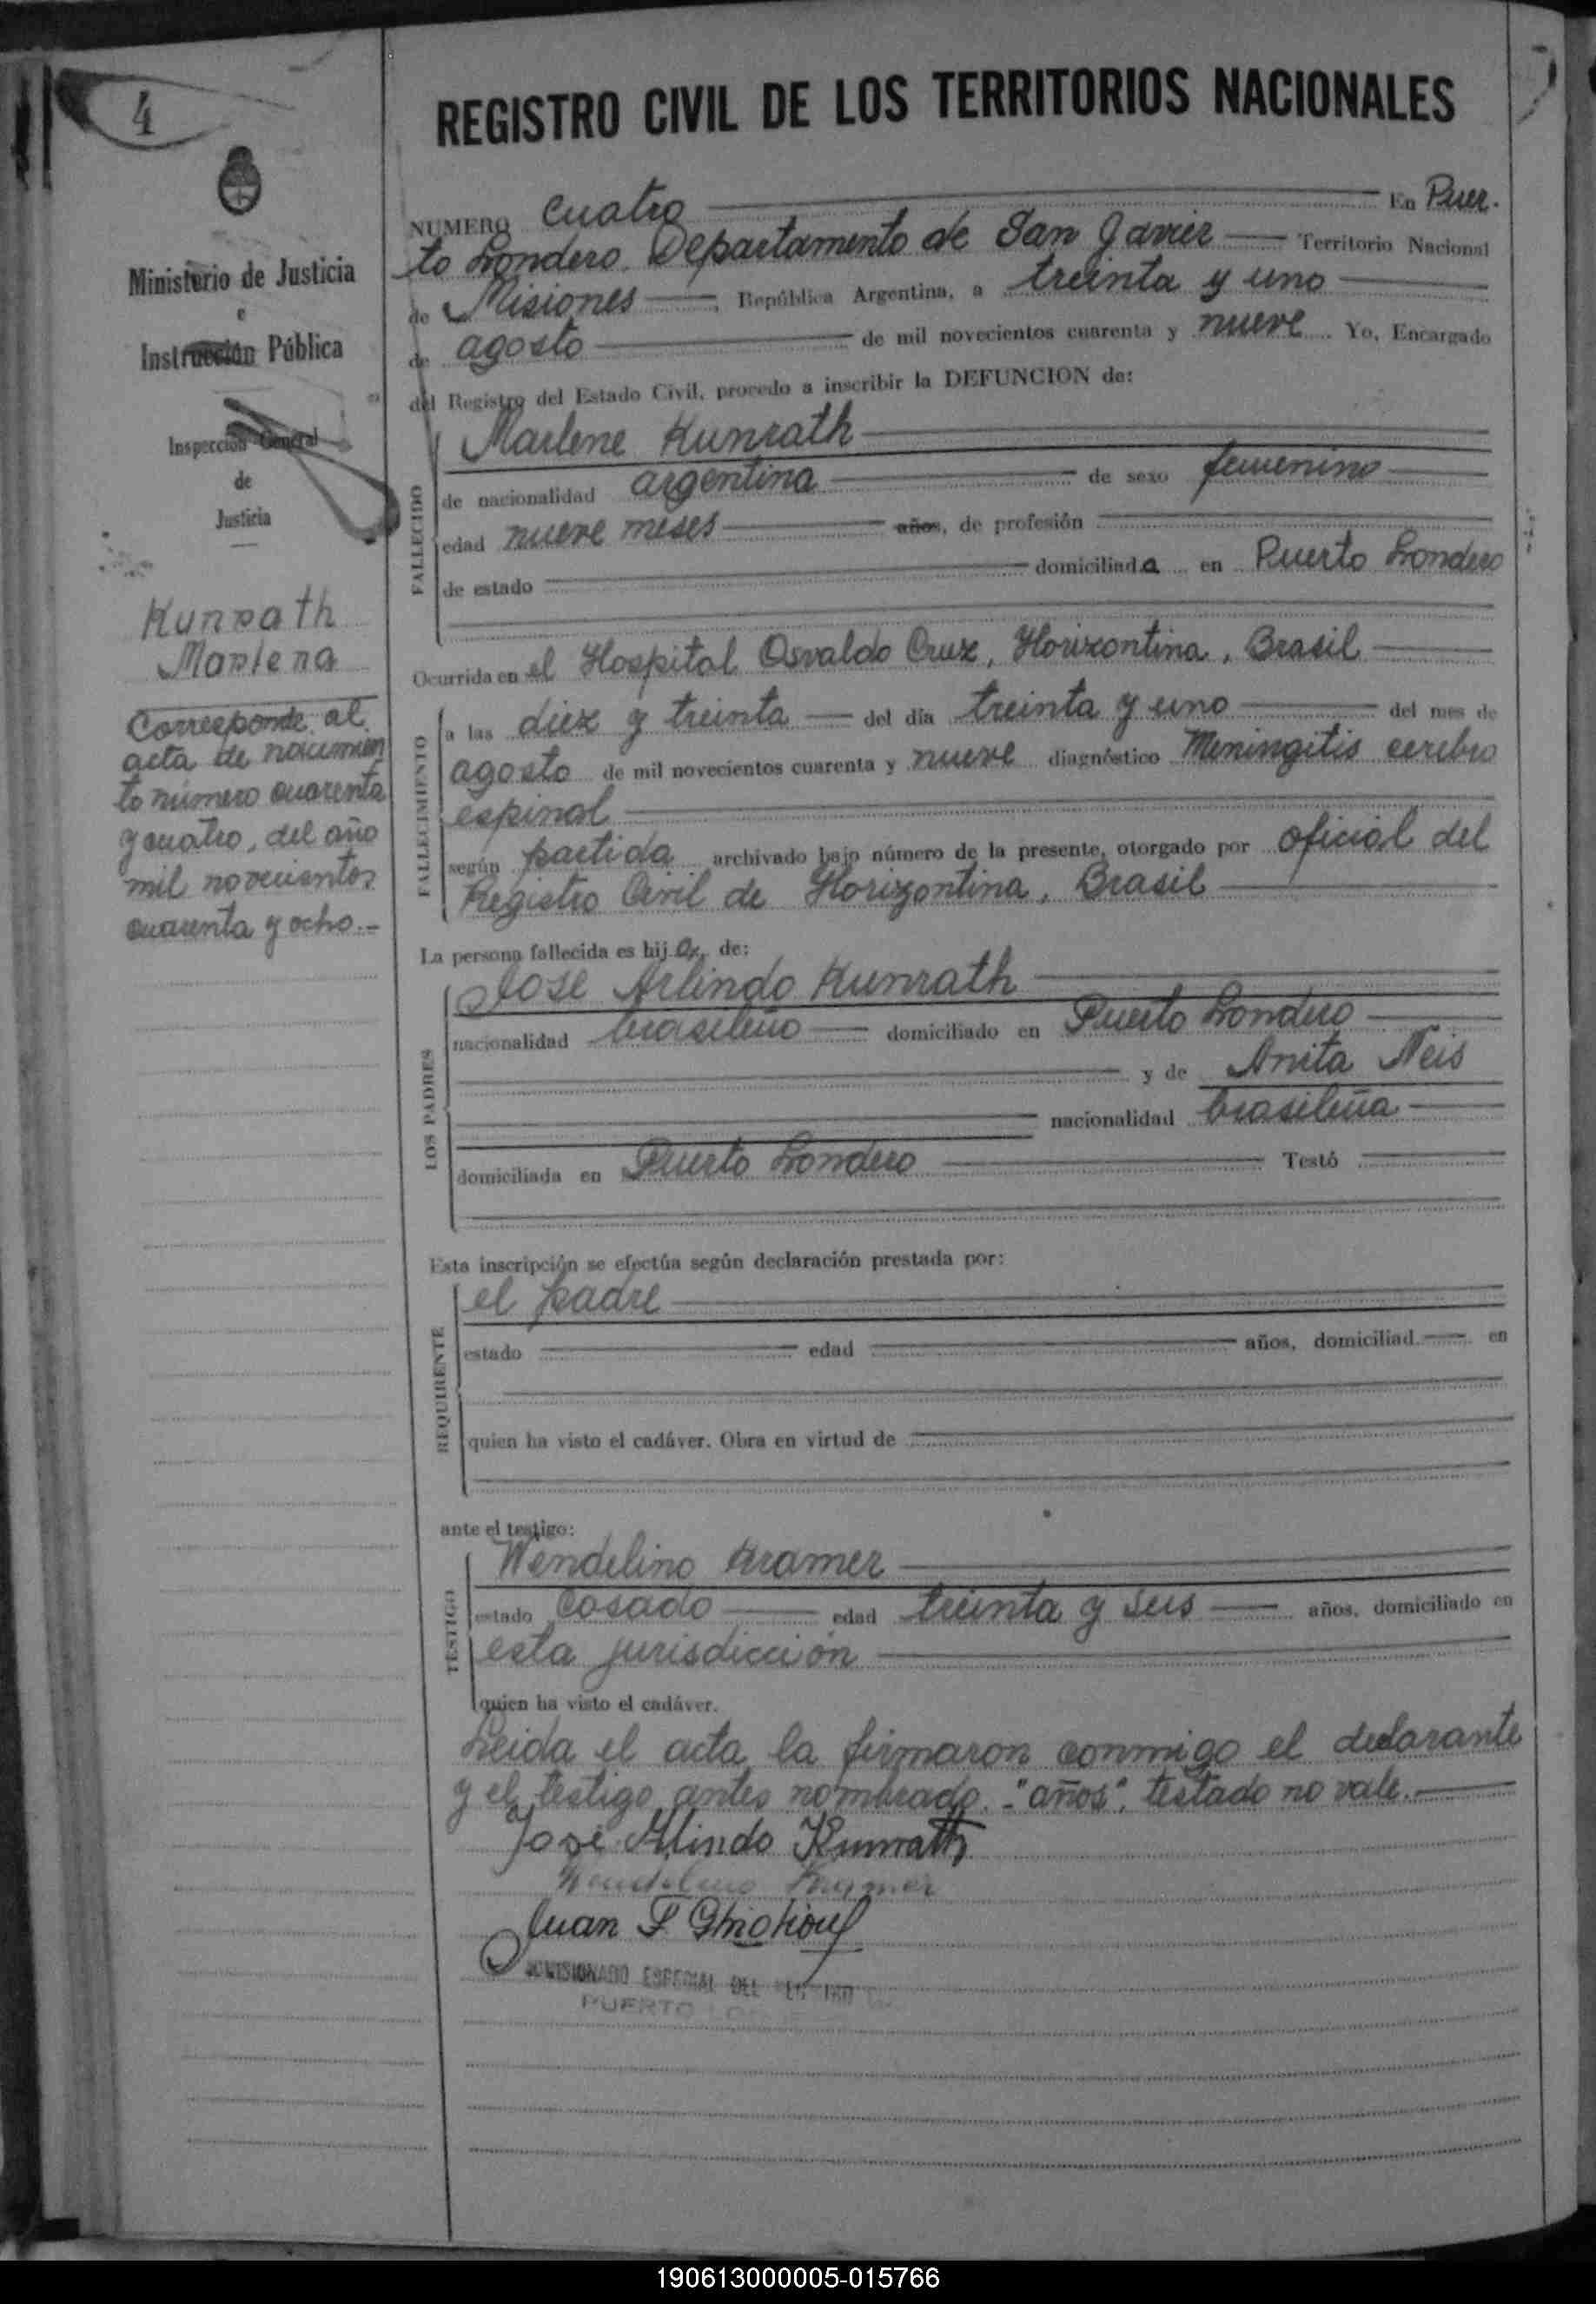 4
REGISTRO CIVIL DE LOS TERRITORIOS NACIONALES
Ministerio de Justicia
e
Instrucción Pública
Inspección General
de
Justicia
Kunrath
Marlena
Corresponde al
acta de nacimien
to número cuarenta
y cuatro, del año
mil novecientos
cuarenta y ocho.-
NUMERO cuatro En Puer-
to Londero. Departamento de San Javier Territorio Nacional
de Misiones, República Argentina, a treinta y uno
de agosto de mil novecientos cuarenta y nueve Yo, Encargado
del Registro del Estado Civil, procedo a inscribir la DEFUNCION de:
FALLECIDO
Marlene Kunrath
de nacionalidad argentina de sexo femenino
edad nueve meses años, de profesión
de estado domiciliada en Puerto Londero
Ocurrida en el Hospital Osvaldo Cruz, Horizontina, Brasil
FALLECIMIENTO
a las diez y treinta del día treinta y uno del mes de
agosto de mil novecientos cuarenta y nueve diagnóstico Meningitis cerebro
espinal
según partida archivado bajo número de la presente, otorgado por oficial del
Registro Civil de Horizontina, Brasil
La persona fallecida es hija, de:
LOS PADRES
José Arlindo Kunrath
nacionalidad brasileño domiciliado en Puerto Londero
y de Anita Neis
nacionalidad brasileña
domiciliada en Puerto Londero Testó
Esta inscripción se efectúa según declaración prestada por:
REQUIRENTE
el padre
estado edad años, domiciliad en
quien ha visto el cadáver. Obra en virtud de
ante el testigo:
TESTIGO
Wendelino Kramer
estado casado edad treinta y seis años, domiciliado en
esta jurisdicción
quien ha visto el cadáver.
Leida el acta la firmaron conmigo el declarante
y el testigo antes nombrado.-"años", testado no vale.
José Arlindo Kunrath
Wendelino Kramer
Juan P
COMISIONADO ESPECIAL DEL
PUERTO
190613000005-015766